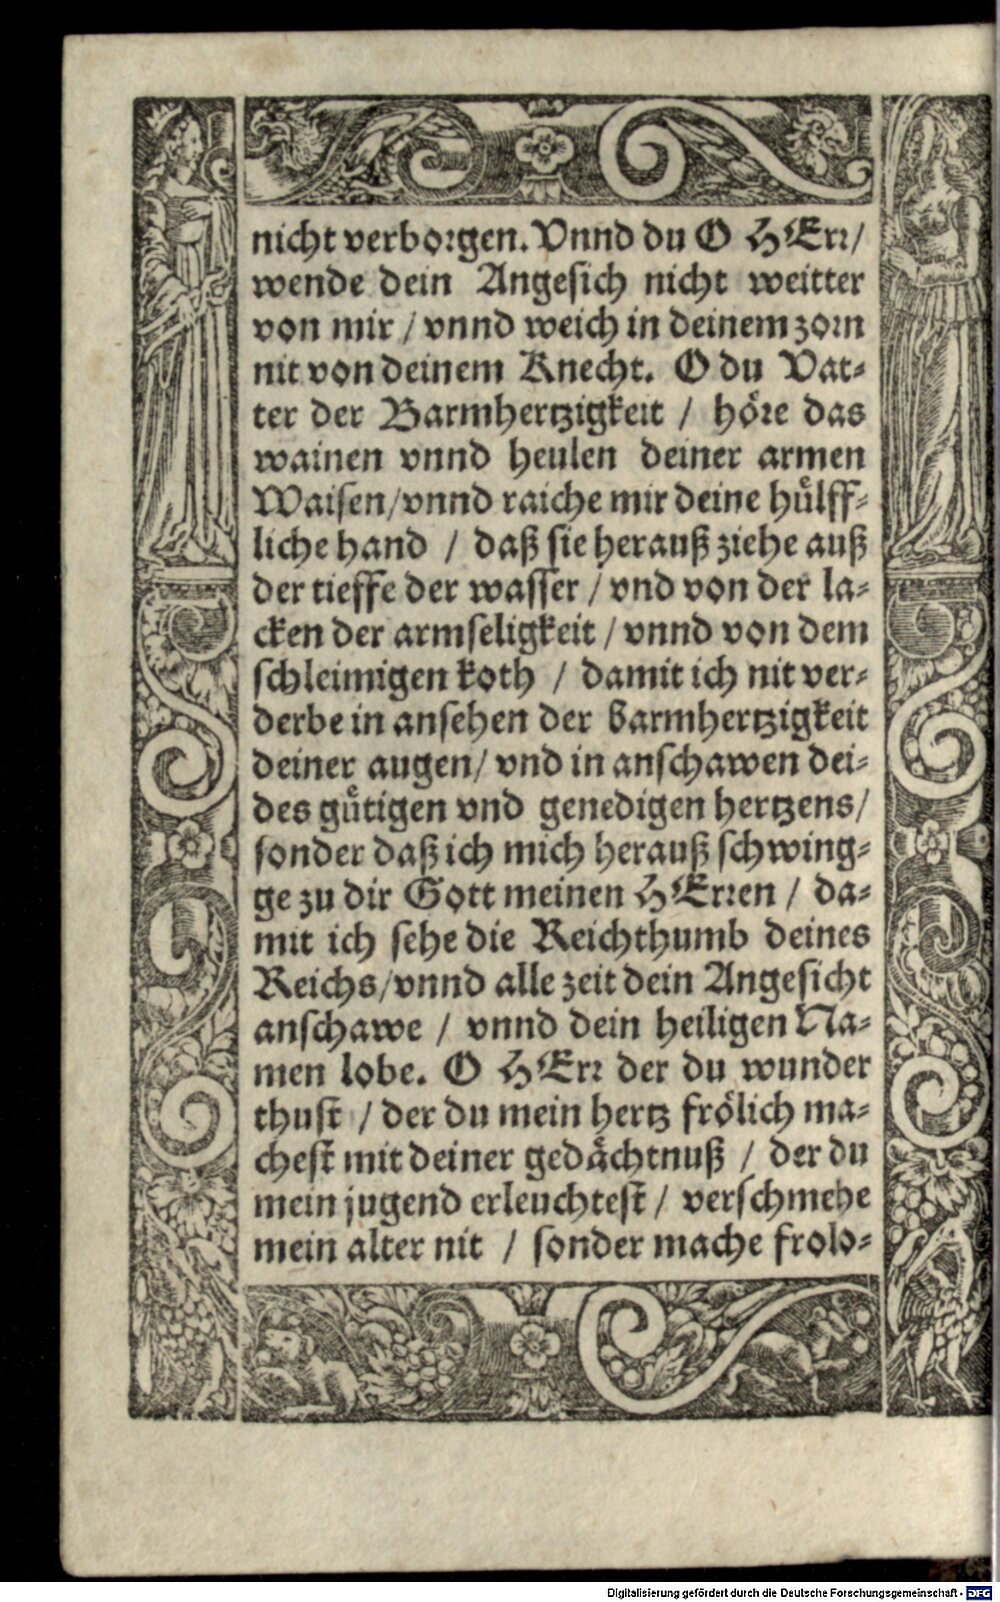 nicht verborgen. Vnnd du O HErr/
wende dein Angesich nicht weitter
von mir / vnnd weich in deinem zorn
nit von deinem Knecht. O du Vat⸗
ter der Barmhertzigkeit / höre das
wainen vnnd heulen deiner armen
Waisen/vnnd raiche mir deine hülff⸗
liche hand / daß sie herauß ziehe auß
der tieffe der wasser / vnd von der la⸗
cken der armseligkeit / vnnd von dem
schleimigen koth / damit ich nit ver⸗
derbe in ansehen der barmhertzigkeit
deiner augen/ vnd in anschawen dei⸗
des gütigen vnd genedigen hertzens/
sonder daß ich mich herauß schwing⸗
ge zu dir Gott meinen HErren / da⸗
mit ich sehe die Reichthumb deines
Reichs/vnnd alle zeit dein Angesicht
anschawe / vnnd dein heiligen Na⸗
men lobe. O HErr der du wunder
thust / der du mein hertz frölich ma⸗
chest mit deiner gedächtnuß / der du
mein jugend erleuchtest / verschmehe
mein alter nit / sonder mache frolo⸗
Digitalisierung gefördert durch die Deutsche Forschungsgemeinschaft - DFG